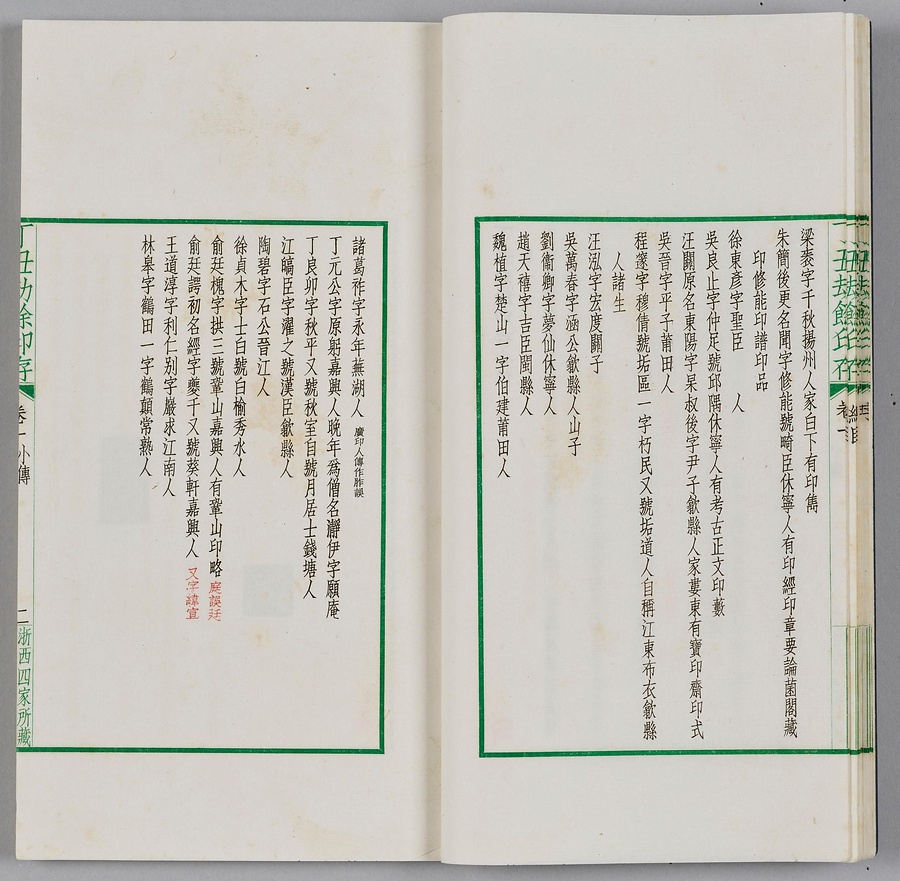 梁袠字千秋揚州人家白下有印雋
朱簡後更名聞字修能號畸臣休寧人有印經印章要論菌閣藏
印修能印譜印品
徐東彥字聖臣 人
吳良止字仲足號邱隅休寧人有考古正文印藪
汪關原名東陽字杲叔後字尹子歙縣人家婁東有寶印齋印式
吳晉字平子莆田人
程邃字穆倩號垢區一字朽民又號垢道人自稱江東布衣歙縣
人諸生
汪泓字宏度關子
吳萬春字涵公歙縣人山子
劉衞卿字夢仙休寧人
趙天禧字吉臣閩縣人
魏植字楚山一字伯建莆田人
諸葛祚字永年蕪湖人 廣印人傳作胙誤
丁元公字原躬嘉興人晚年爲僧名濳伊字願庵
丁良卯字秋平又號秋室自號月居士錢塘人
江皜臣字濯之號漢臣歙縣人
陶碧字石公晉江人
徐貞木字士白號白榆秀水人
俞廷槐字拱三號鞏山嘉興人有鞏山印略 庭誤廷
俞廷諤初名經字夔千又號葵軒嘉興人 又字緯宣
王道淳字利仁别字嚴求江南人
林皋字鶴田一字鶴顛常熟人
丁丑劫餘印存 卷一小傳 二 浙西四家所藏